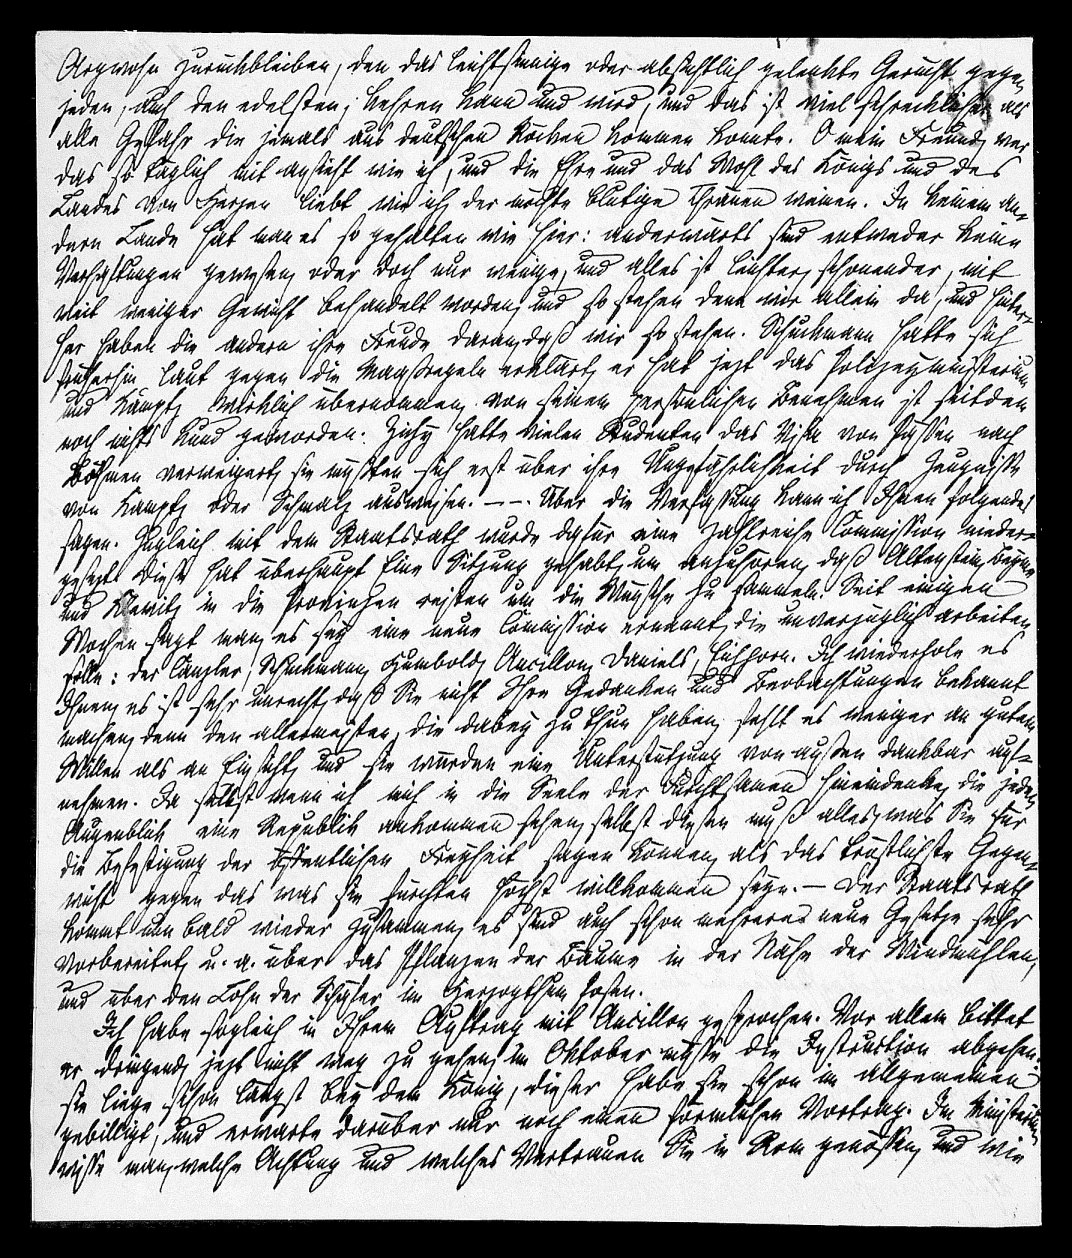 Argwohn zurückbleiben, den das leichtsinnige oder absichtlich gelenkte Gerücht gegen
jeden, auch den edelsten, kehren kann und wird, und das ist viel schrecklicher als
alle Gefahr die jemals aus deutschen Röcken kommen konnte. O mein Freund, wer
das so täglich mit ansieht wie ich, und die Ehre und das Wohl des Königs und des
Landes von Herzen liebt wie ich der möchte blutige Thränen weinen. In keinem an-
dern Lande hat man es so gehalten wie hier: anderwärts sind entweder keine
Verhaftungen gewesen, oder doch nur wenige, und alles ist leichter, schonender, mit
weit weniger Gewicht behandelt worden, und so stehen denn wir allein da, und hinter-
her haben die andern ihre Freude daran, daß wir so stehen. Schuckmann hatte sich
früherhin laut gegen die Maaßregeln erklärt, er hat jezt das Polizeyministerium
und Kamptz wirklich übernommen, von seinem persönlichen Benehmen ist seitdem
noch nichts kund geworden. Zichy hatte vielen Studenten das Visa von Pässen nach
Böhmen verweigert, sie mußten sich erst über ihre Ungefährlichkeit durch Zeugnisse
von Kamptz oder Schmalz ausweisen. — Über die Verfassung kann ich Ihnen folgendes
sagen. Zugleich mit dem Staatsrath wurde dafür eine zahlreiche Commission nieder-
gesezt. Diese hat überhaupt Eine Sitzung gehabt, um anzuhören, daß Altenstein, Beyme
und Klewitz in die Provinzen reisten um die Wünsche zu sammeln. Seit einigen
Wochen sagt man, es sey eine neue Commission ernannt, die unverzüglich arbeiten
solle: der Canzler, Schuckmann, Humboldt, Ancillon, Daniels, Eichhorn. Ich wiederhole es
Ihnen, es ist sehr unrecht, daß Sie nicht Ihre Gedanken und Beobachtungen bekannt
machen, denn den allermeisten, die dabey zu thun haben, fehlt es weniger an gutem
Willen als an Einsicht, und sie würden eine Unterstützung von außen dankbar auf-
nehmen. Ja selbst wenn ich mich in die Seele der Furchtsamen hineindenke, die jeden
Augenblick eine Republik ankommen sehen, selbst diesen muß alles, was Sie für
die Befestigung der öffentlichen Freyheit sagen können, als das tröstlichste Gegen-
wicht gegen das was sie fürchten höchst willkommen seyn. — Der Staatsrath
kommt nun bald wieder zusammen, es sind auch schon mehrere neue Gesetze sehr
vorbereitet, u. a. über das Pflanzen der Bäume in der Nähe der Windmühlen,
und über den Lohn der Schäfer im Herzogthum Posen.
Ich habe sogleich in Ihrem Auftrag mit Ancillon gesprochen. Vor allem bittet
er dringend, jezt nicht weg zu gehen, im Oktober müsse die Instruktion abgehen:
sie liege schon längst bey dem König, dieser habe sie schon im allgemeinen
gebilligt, und erwarte darüber nur noch einen förmlichen Vortrag. Im Ministerium
wisse man, welche Achtung und welches Vertrauen Sie in Rom genössen, und wie